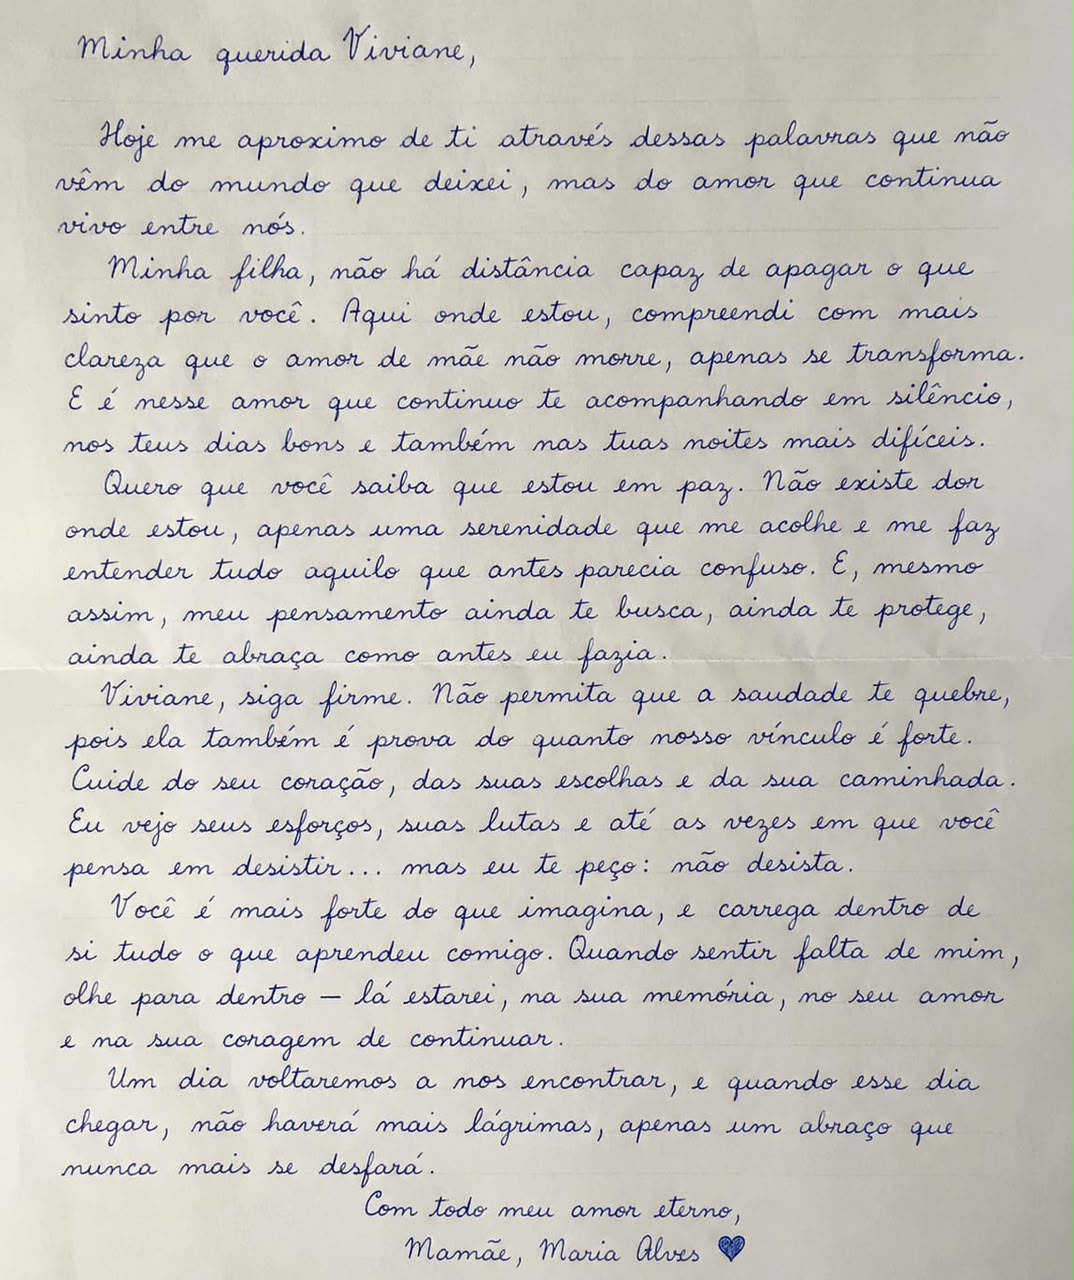 Minha querida Viviane,
Hoje me aproximo de ti através dessas palavras que não
vêm do mundo que deixei, mas do amor que continua
vivo entre nós.
Minha filha, não há distância capaz de apagar o que
sinto por você. Aqui onde estou, compreendi com mais
clareza que o amor de mãe não morre, apenas se transforma.
E é nesse amor que continuo te acompanhando em silêncio,
nos teus dias bons e também nas tuas noites mais difíceis.
Quero que você saiba que estou em paz. Não existe dor
onde estou, apenas uma serenidade que me acolhe e me faz
entender tudo aquilo que antes parecia confuso. E, mesmo
assim, meu pensamento ainda te busca, ainda te protege,
ainda te abraça como antes eu fazia.
Viviane, siga firme. Não permita que a saudade te quebre,
pois ela também é prova do quanto nosso vínculo é forte.
Cuide do seu coração, das suas escolhas e da sua caminhada.
Eu vejo seus esforços, suas lutas e até as vezes em que você
pensa em desistir... mas eu te peço: não desista.
Você é mais forte do que imagina, e carrega dentro de
si tudo o que aprendeu comigo. Quando sentir falta de mim,
olhe para dentro – lá estarei, na sua memória, no seu amor
e na sua coragem de continuar.
Um dia voltaremos a nos encontrar, e quando esse dia
chegar, não haverá mais lágrimas, apenas um abraço que
nunca mais se desfará.
Com todo meu amor eterno,
Mamãe, Maria Alves ♥